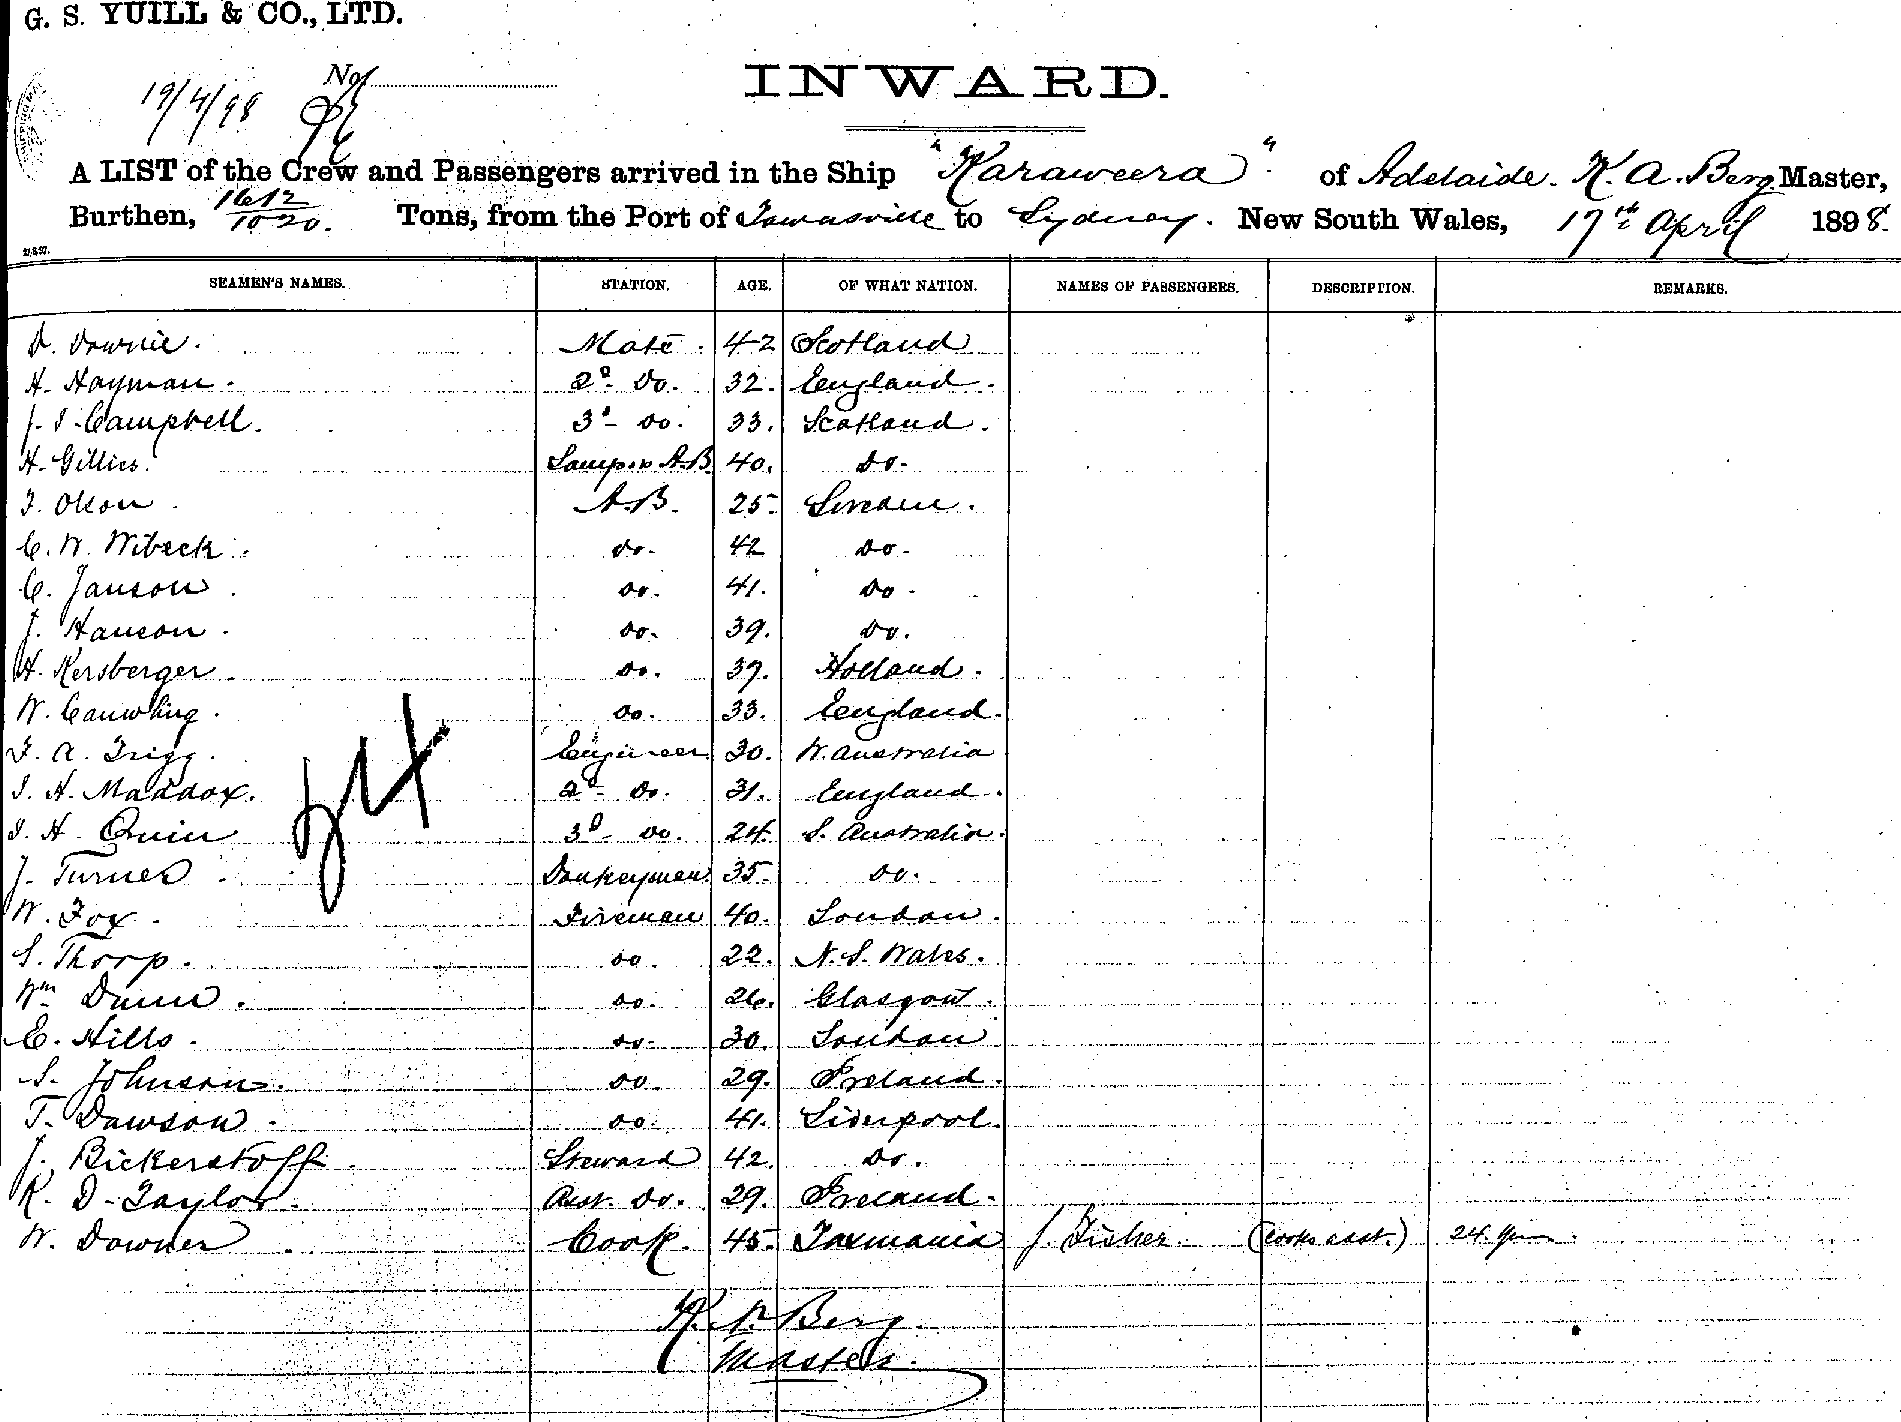 G. S. YUILL & CO., LTD.
No
19/4/98
INWARD.
A LIST of the Crew and Passengers arrived in the Ship "Karaweera" of Adelaide. K. A. Berg Master,
Burthen, 1612/1020. Tons, from the Port of Townsville to Sydney. New South Wales, 17th April 1898.
SEAMEN'S NAMES. STATION. AGE. OF WHAT NATION. NAMES OF PASSENGERS. DESCRIPTION. REMARKS.
D. Downie. Mate. 42 Scotland
H. Hayman. 2d Do. 32. England.
J. S. Campbell. 3d do. 33. Scotland.
H. Gillies. Lamps & A.B. 40. Do.
F. Olson A.B. 25. Sweden.
C. W. Wibeck. do. 42 Do.
C. Janson. do. 41. Do.
J. Hanson. do. 39. Do.
H. Kersberger. do. 37. Holland.
W. do. 33. England.
F. A. Trigg. Engineer 30. W. Australia
S. H. Maddox. 2d Do. 31. England.
S. H. Quin 3d do. 24. S. Australia.
J. Turner. Donkeyman. 35. do.
W. Fox. Fireman 40. London.
S. Thorp. do. 22. N. S. Wales.
Wm Dunn. do. 26. Glasgow.
E. Hills. do. 30. London
S. Johnson. do. 29. Ireland.
T. Dawson. do. 41. Liverpool.
J. Bickerstoff. Steward 42. Do.
R. D. Taylor. Asst. Do. 29. Ireland.
W. Downer. Cook. 45. Tasmania J. Fisher. (Cooks asst.) 24.
K. A. Berg.
Master.